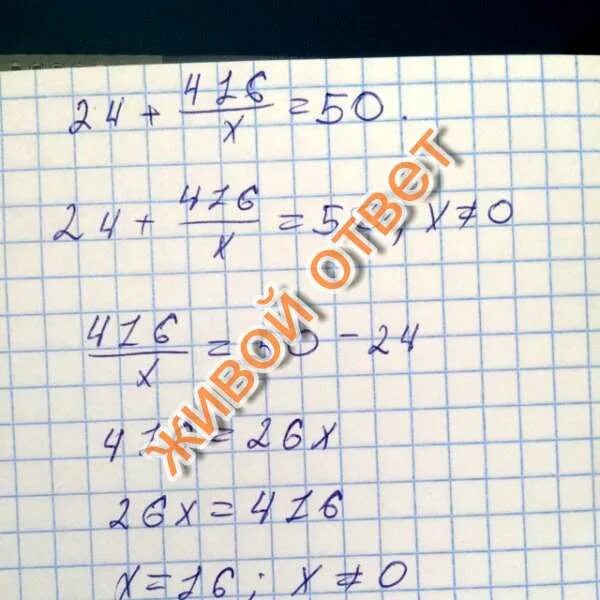 24 + 416/x = 50.
24 + 416/x = 50, x ≠ 0
416/x = 50 - 24
416 = 26x
26x = 416
x = 16; x ≠ 0
ЖИВОЙ ОТВЕТ